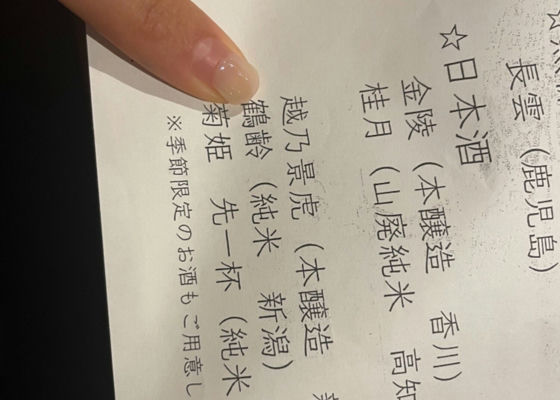 長雲（鹿児島）
☆日本酒
金陵（本醸造　香川）
桂月（山廃純米　高知
越乃景虎（本醸造
鶴齢（純米　新潟）
菊姫　先一杯（純米
※季節限定のお酒もご用意し